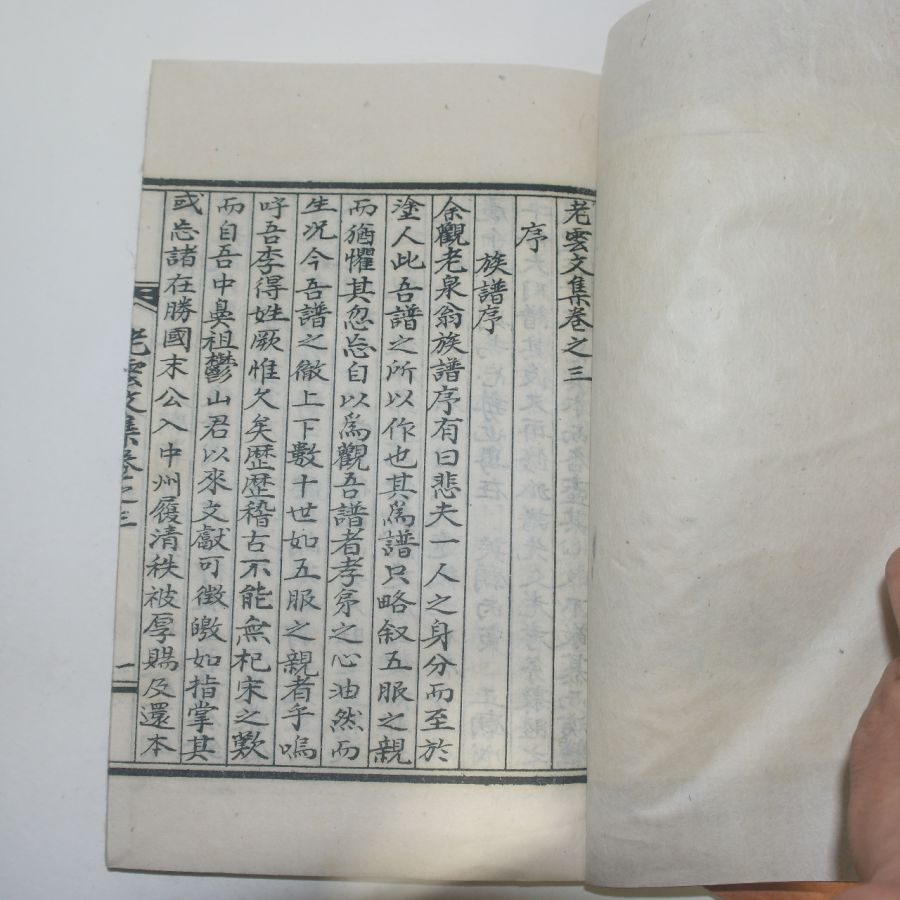 老雲文集卷之三
序
族譜序
余觀老泉翁族譜序有曰悲夫一人之身分而至於
塗人此吾譜之所以作也其爲譜只略叙五服之親
而猶懼其忽忘自以爲觀吾譜者孝悌之心油然而
生况今吾譜之徹上下數十世如五服之親者乎嗚
呼吾李得姓厥惟久矣歷歷稽古不能無杞宋之歎
而自吾中鼻祖鬱山君以來文獻可徵皦如指掌其
或忘諸在勝國末公入中州履清秩被厚賜及還本
老雲文集卷之三
一